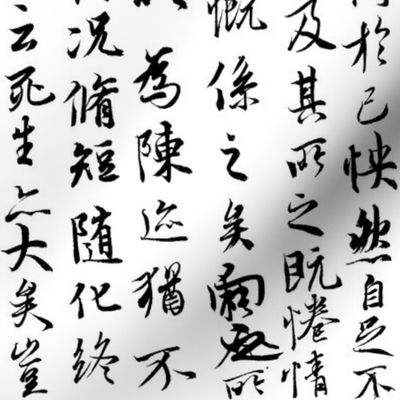 於己怏然自足不
及其所之既惓情
慨係之矣向之所
為陳迹猶不
况脩短随化終
云死生亦大矣豈